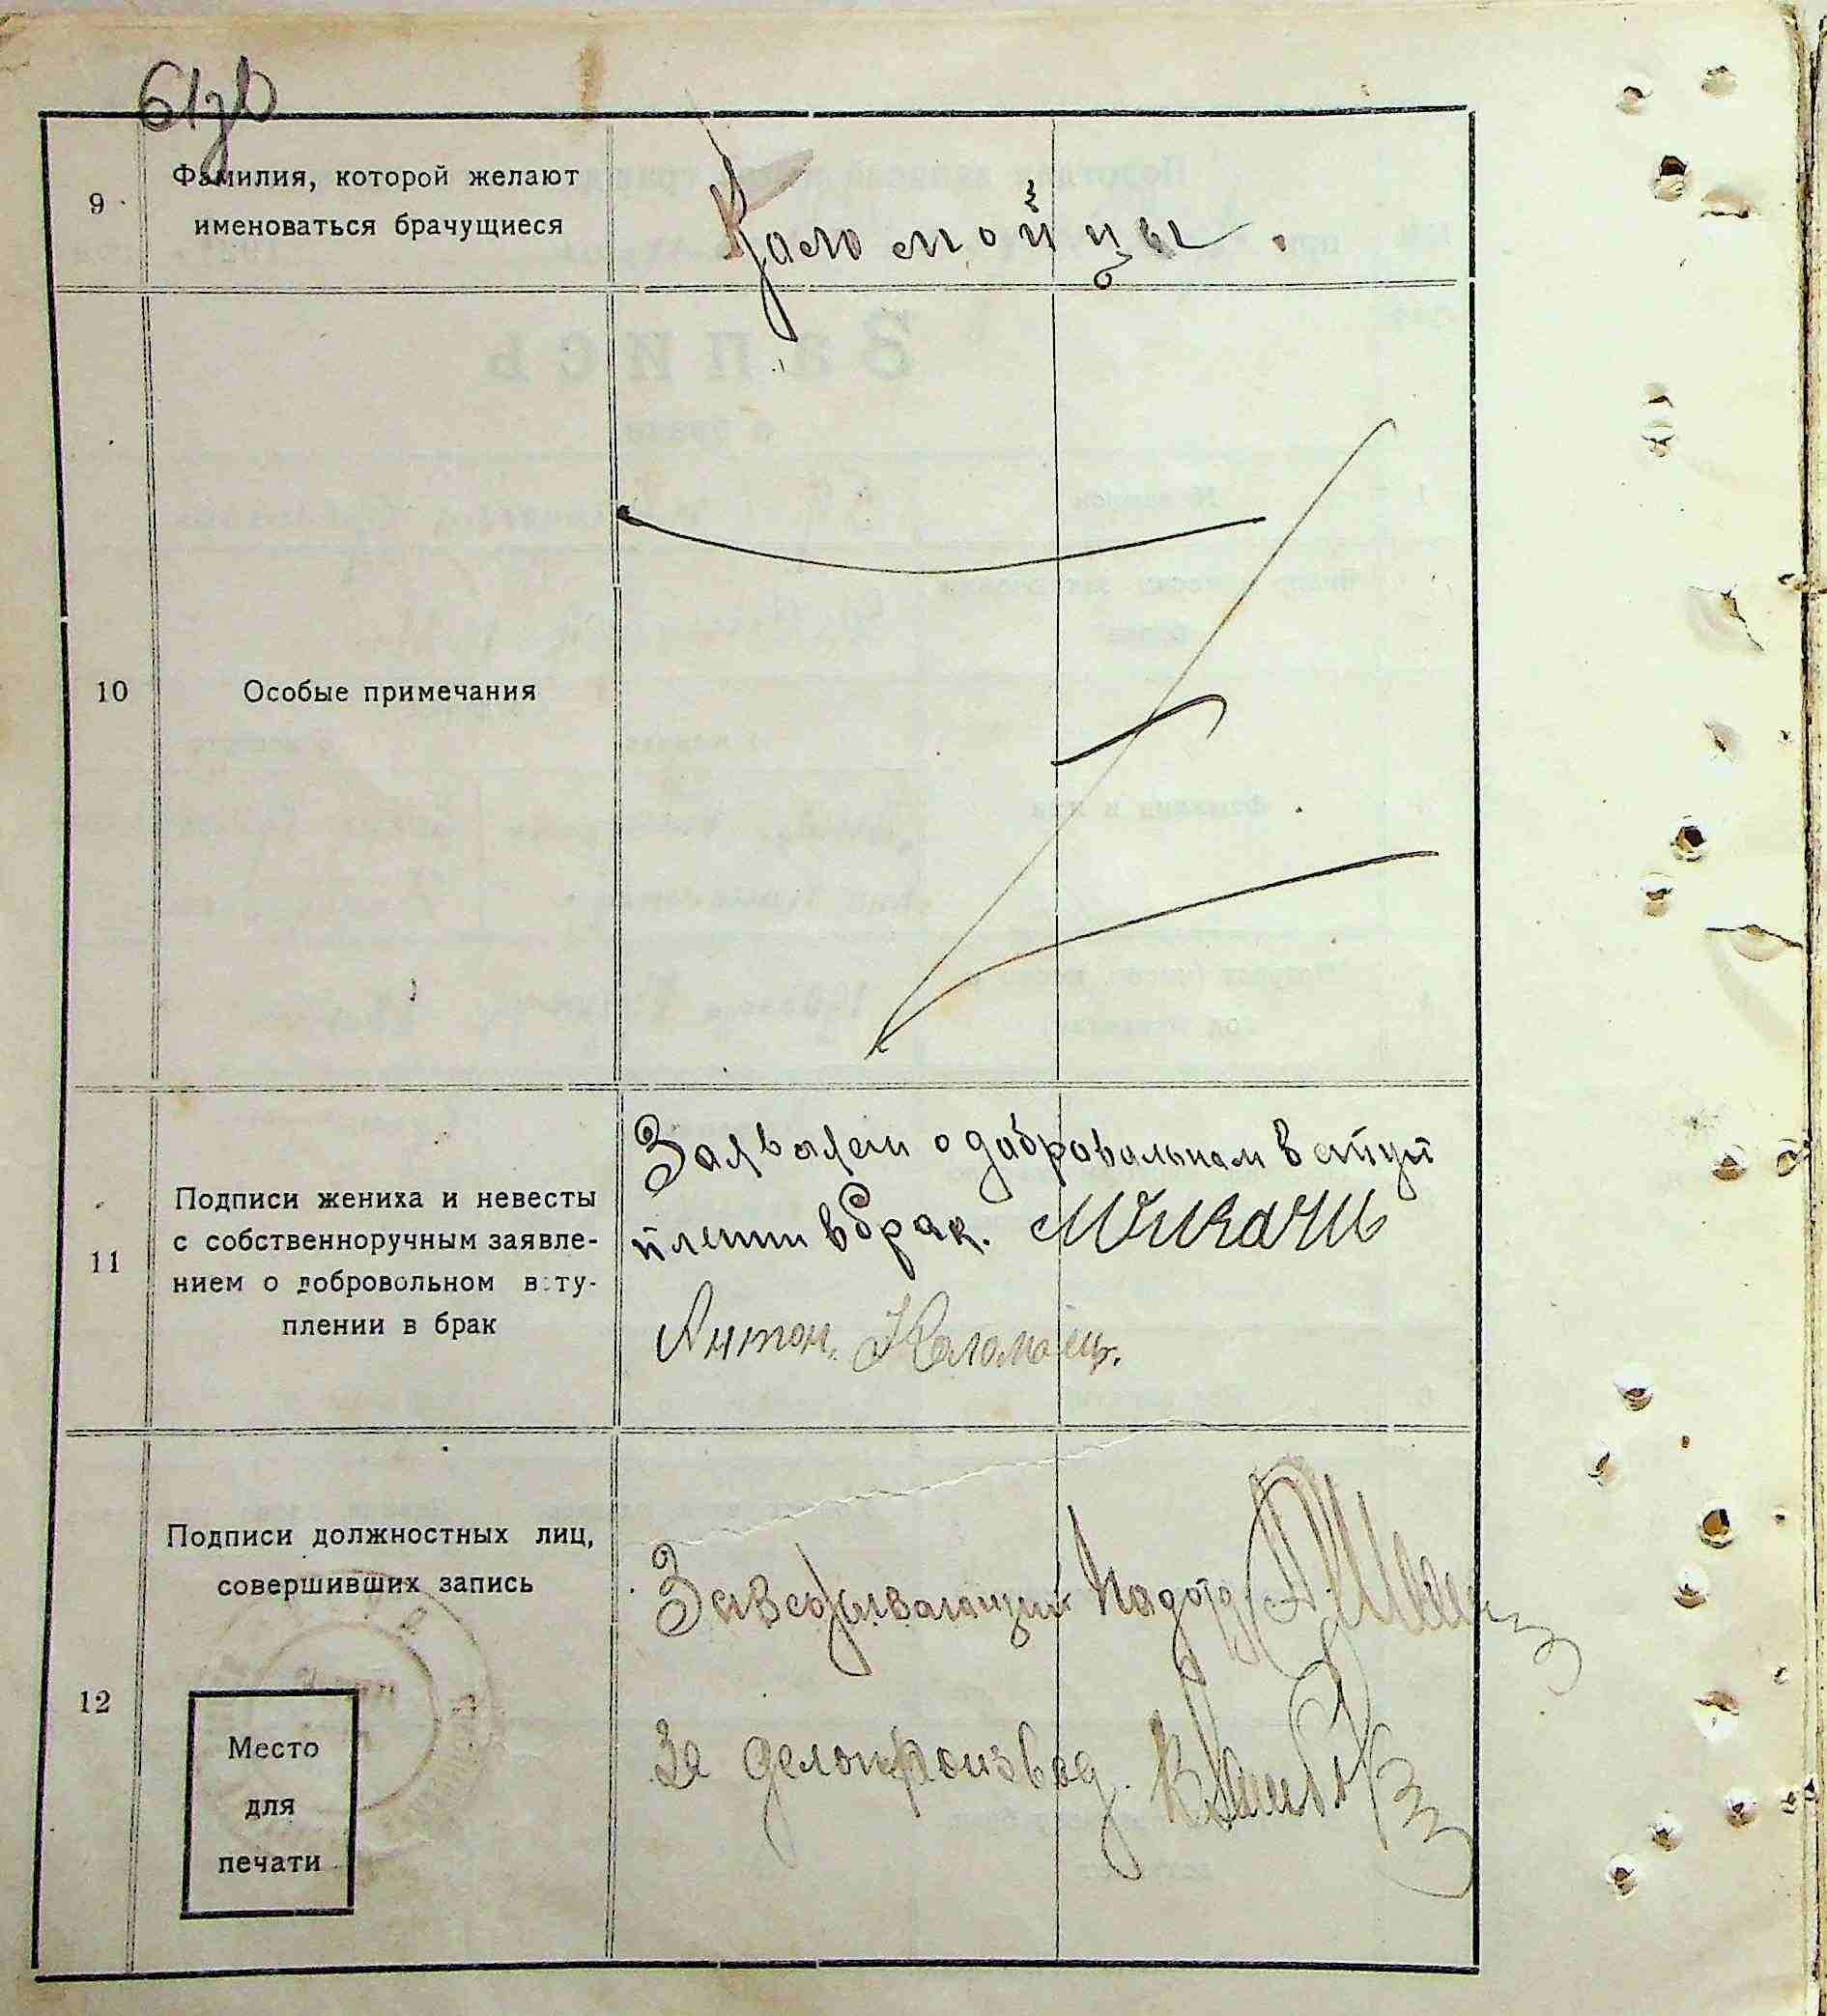 61
9
Фамилия, которой желают
именоваться брачущиеся
Коломойцы.
10
Особые примечания
11
Подписи жениха и невесты
с собственноручным заявле-
нием о добровольном всту-
плении в брак
Заявляем о добровальном в ступ
плении в брак.
Антон. Коломоец.
12
Подписи должностных лиц,
совершивших запись
Заведывающий Подотд
За делопроизвод.
Место
для
печати